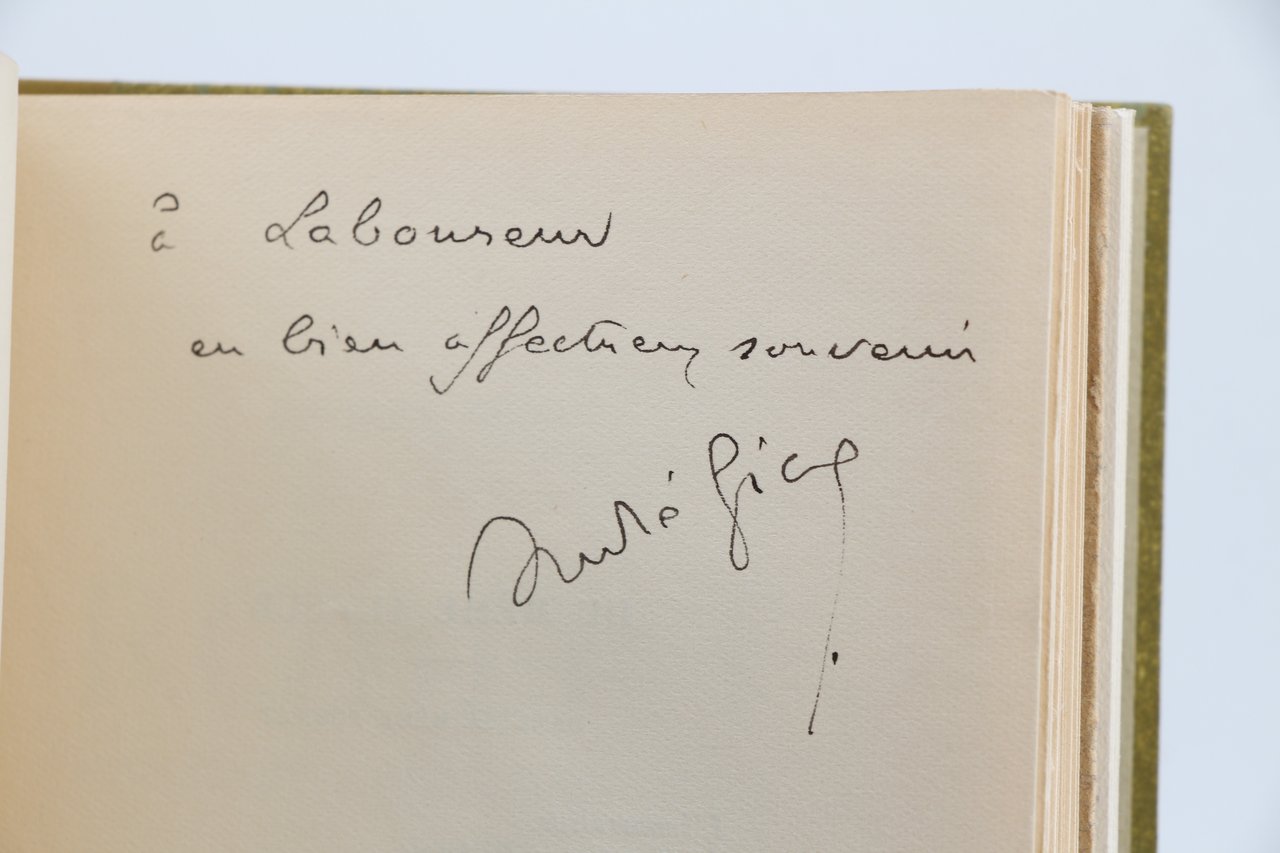 à Laboureur
en bien affectueux souvenir
André Gide